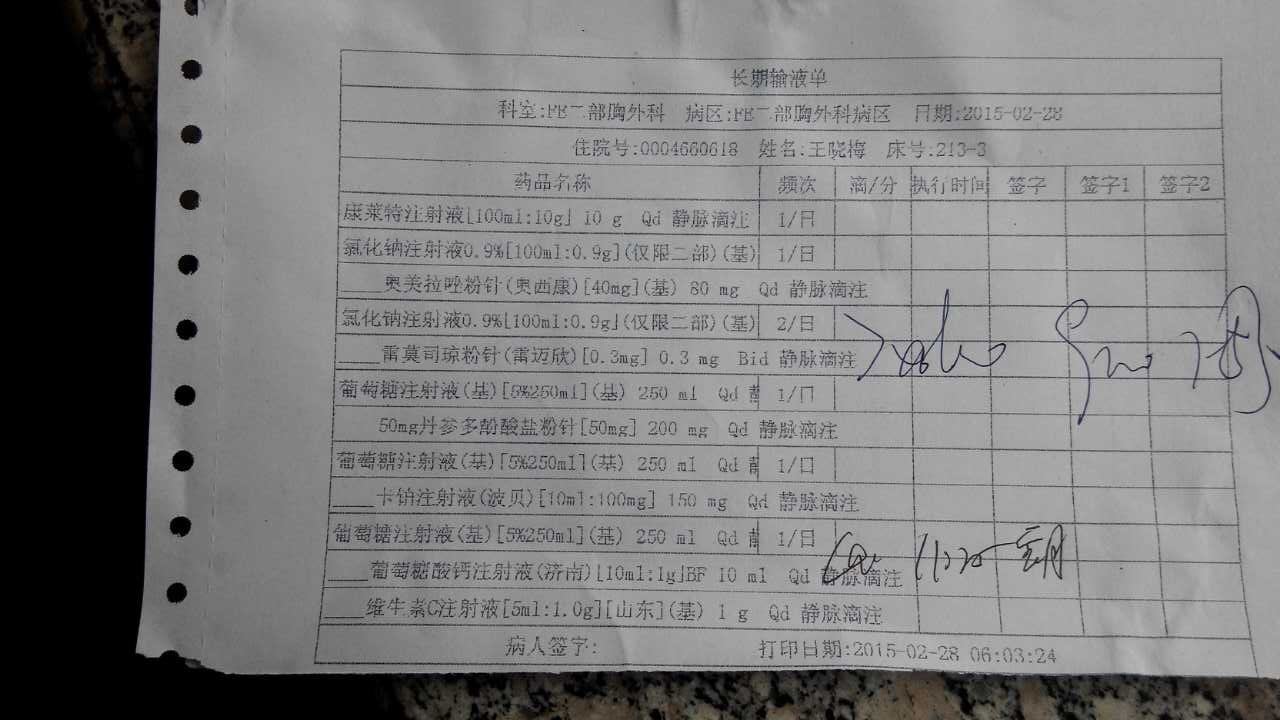 长期输液单
科室:FB二部胸外科 病区:FB二部胸外科病区 日期:2015-02-28
住院号:0004660618 姓名:王晓梅 床号:213-3
药品名称 频次 滴/分 执行时间 签字 签字1 签字2
康莱特注射液[100ml:10g] 10 g Qd 静脉滴注 1/日
氯化钠注射液0.9%[100ml:0.9g](仅限二部)(基) 1/日
____奥美拉唑粉针(奥西康)[40mg](基) 80 mg Qd 静脉滴注
氯化钠注射液0.9%[100ml:0.9g](仅限二部)(基) 2/日
____雷莫司琼粉针(雷迈欣)[0.3mg] 0.3 mg Bid 静脉滴注
葡萄糖注射液(基)[5%250ml](基) 250 ml Qd 1/日
50mg丹参多酚酸盐粉针[50mg] 200 mg Qd 静脉滴注
葡萄糖注射液(基)[5%250ml](基) 250 ml Qd 1/日
____卡铂注射液(波贝)[10ml:100mg] 150 mg Qd 静脉滴注
葡萄糖注射液(基)[5%250ml](基) 250 ml Qd 1/日
____葡萄糖酸钙注射液(济南)[10ml:1g]BF 10 ml Qd 静脉滴注
____维生素C注射液[5ml:1.0g][山东](基) 1 g Qd 静脉滴注
病人签字: 打印日期:2015-02-28 06:03:24